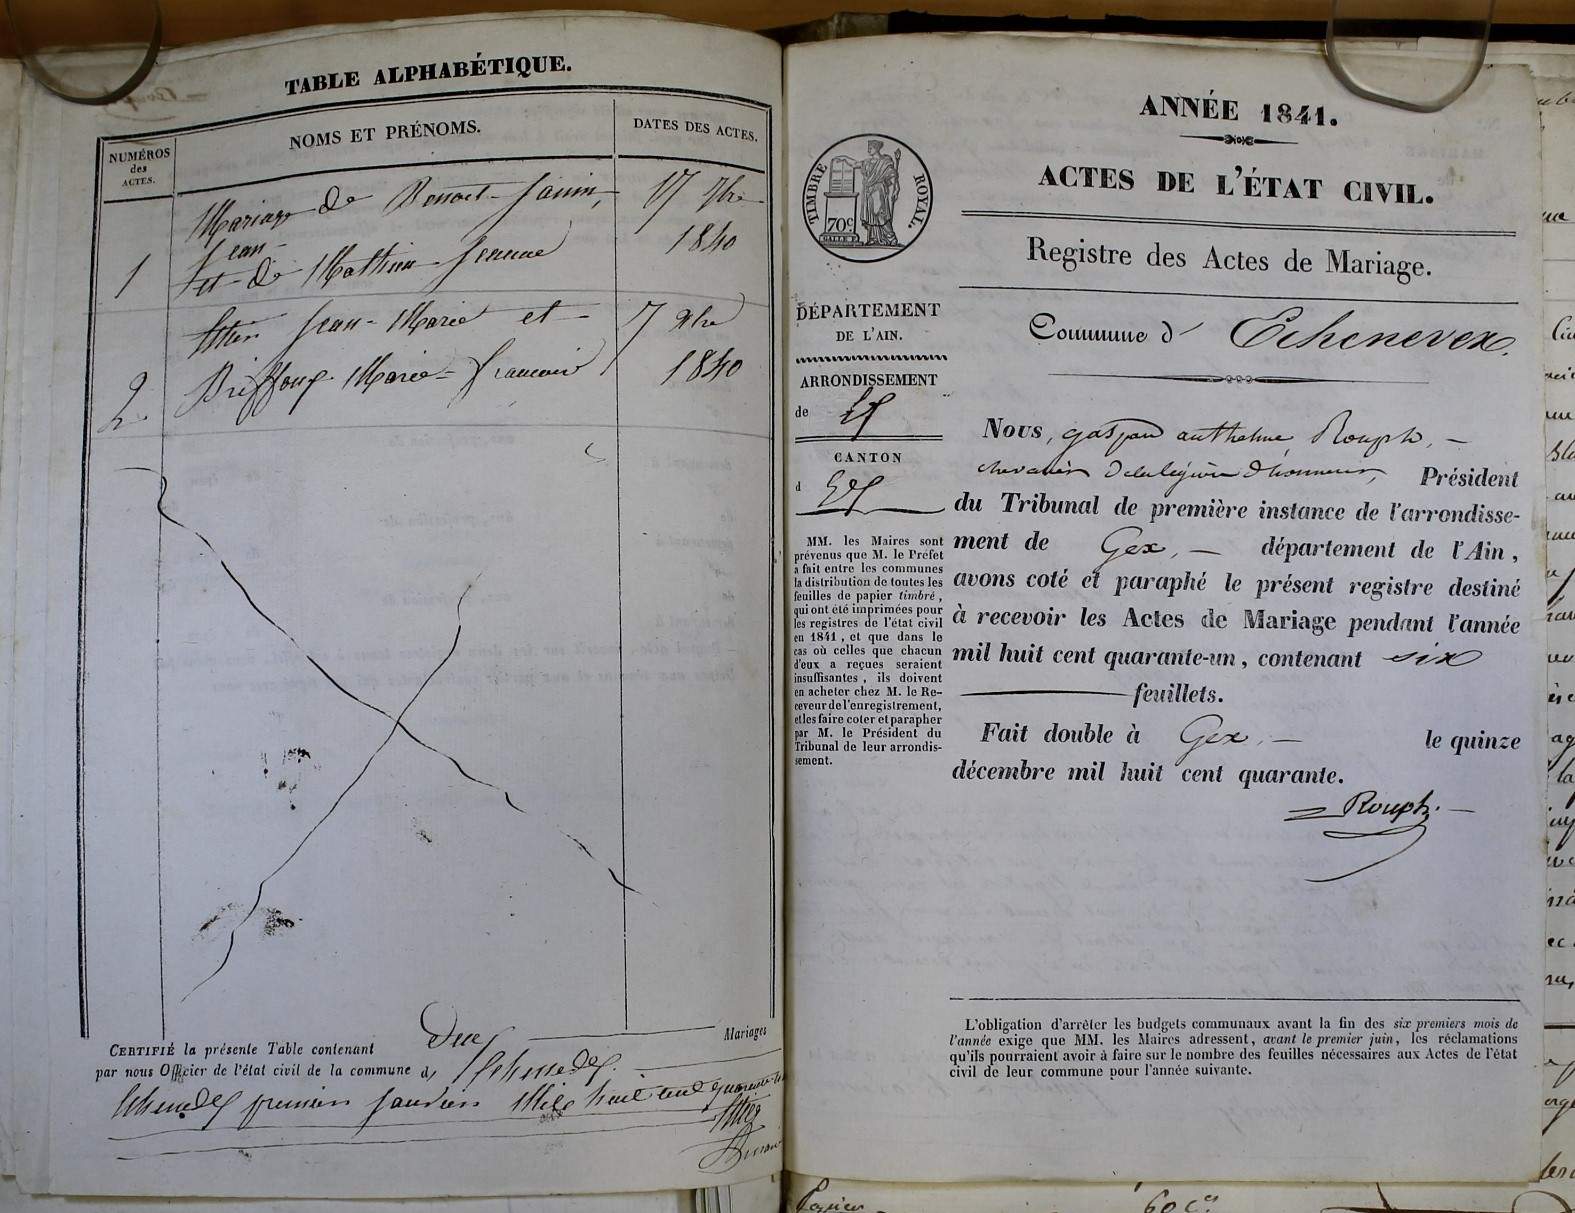 TABLE ALPHABÉTIQUE.
NUMÉROS
des
ACTES.
NOMS ET PRÉNOMS.
DATES DES ACTES.
Mariage de Benoit-Janin,
Jean
1
et de Mathieu Jeanne
17 7bre
1840
Jean-Marie et
2
Marie-
7 xbre
1840
CERTIFIÉ la présente Table contenant
Mariages
par nous Officier de l'état civil de la commune d
premier Janvier Mile huit cent quarante
ANNÉE 1841.
ACTES DE L'ÉTAT CIVIL.
Registre des Actes de Mariage.
Commune d' Echenevex.
TIMBRE ROYAL.
70c
DÉPARTEMENT
DE L'AIN.
ARRONDISSEMENT
de Gex
CANTON
d Gex
MM. les Maires sont
prévenus que M. le Préfet
a fait entre les communes
la distribution de toutes les
feuilles de papier timbré,
qui ont été imprimées pour
les registres de l'état civil
en 1841, et que dans le
cas où celles que chacun
d'eux a reçues seraient
insuffisantes, ils doivent
en acheter chez M. le Re-
ceveur de l'enregistrement,
et les faire coter et parapher
par M. le Président du
Tribunal de leur arrondis-
sement.
Nous, gaspard anthelme Rouph, -
chevalier de la légion d'honneur, Président
du Tribunal de première instance de l'arrondisse-
ment de Gex, - département de l'Ain,
avons coté et paraphé le présent registre destiné
à recevoir les Actes de Mariage pendant l'année
mil huit cent quarante-un, contenant six
feuillets.
Fait double à Gex, - le quinze
décembre mil huit cent quarante.
Rouph.
L'obligation d'arrêter les budgets communaux avant la fin des six premiers mois de
l'année exige que MM. les Maires adressent, avant le premier juin, les réclamations
qu'ils pourraient avoir à faire sur le nombre des feuilles nécessaires aux Actes de l'état
civil de leur commune pour l'année suivante.